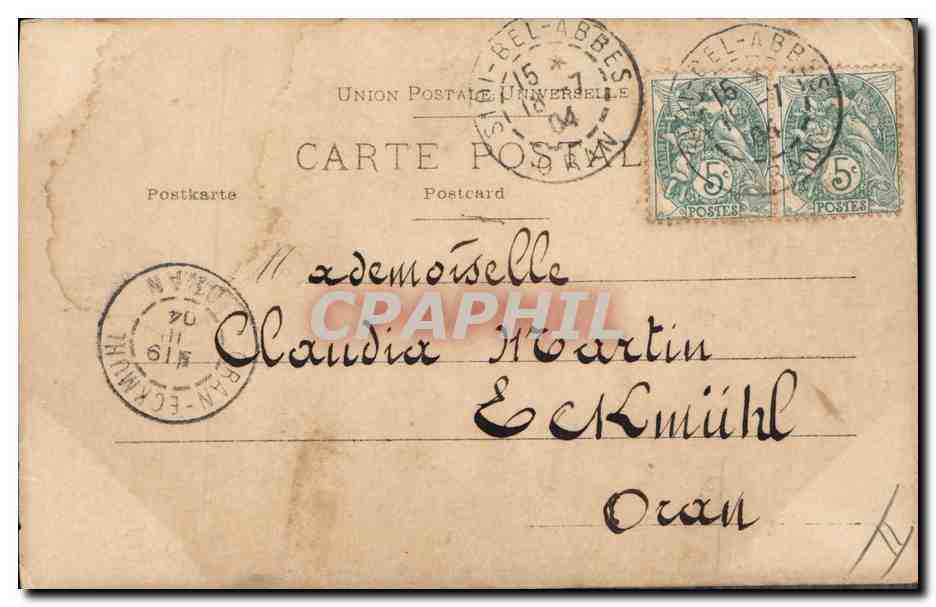 SIDI-BEL-ABBES
15
18 -7
04
ORAN
BEL-ABBES
15
04
ORAN
UNION POSTALE UNIVERSELLE
CARTE POSTALE
Postkarte
Postcard
5c
POSTES
5c
POSTES
Mademoiselle
CRAPHIL
Claudia Martin
Eckmühl
Oran
ORAN-ECKMUHL
19
04
ORAN